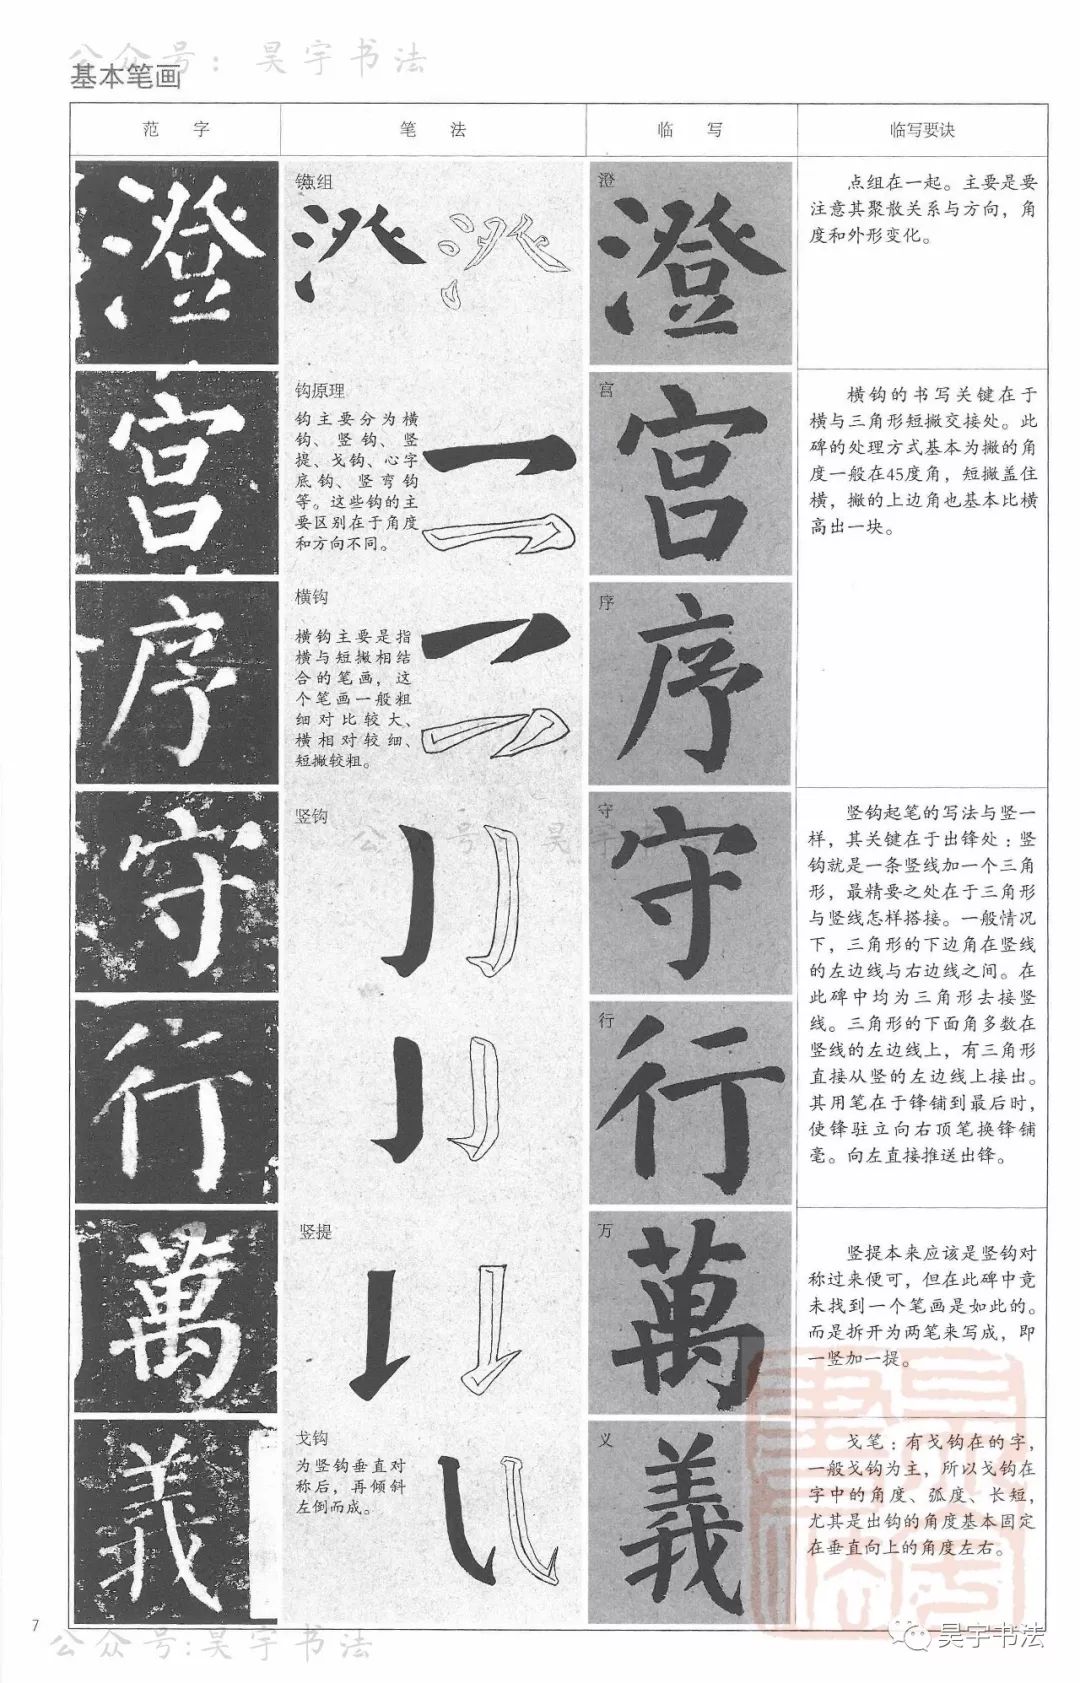 公众号：昊宇书法
基本笔画
范 字
笔 法
临 写
临写要诀
澄
点组
澄
点组在一起。主要是要
注意其聚散关系与方向，角
度和外形变化。
宫
钩原理
钩主要分为横
钩、竖钩、竖
提、戈钩、心字
底钩、竖弯钩
等。这些钩的主
要区别在于角度
和方向不同。
宫
宫
横钩的书写关键在于
横与三角形短撇交接处。此
碑的处理方式基本为撇的角
度一般在45度角，短撇盖住
横，撇的上边角也基本比横
高出一块。
序
横钩
横钩主要是指
横与短撇相结
合的笔画，这
个笔画一般粗
细对比较大、
横相对较细、
短撇较粗。
序
序
守
竖钩
公众号 昊宇书
守
守
竖钩起笔的写法与竖一
样，其关键在于出锋处：竖
钩就是一条竖线加一个三角
形，最精要之处在于三角形
与竖线怎样搭接。一般情况
下，三角形的下边角在竖线
的左边线与右边线之间。在
此碑中均为三角形去接竖
线。三角形的下面角多数在
竖线的左边线上，有三角形
直接从竖的左边线上接出。
其用笔在于锋铺到最后时，
使锋驻立向右顶笔换锋铺
毫。向左直接推送出锋。
行
行
行
萬
竖提
万
萬
竖提本来应该是竖钩对
称过来便可，但在此碑中竟
未找到一个笔画是如此的。
而是拆开为两笔来写成，即
一竖加一提。
義
戈钩
为竖钩垂直对
称后，再倾斜
左倒而成。
义
義
戈笔：有戈钩在的字，
一般戈钩为主，所以戈钩在
字中的角度、弧度、长短，
尤其是出钩的角度基本固定
在垂直向上的角度左右。
7
公众号:昊宇书法
昊宇书法